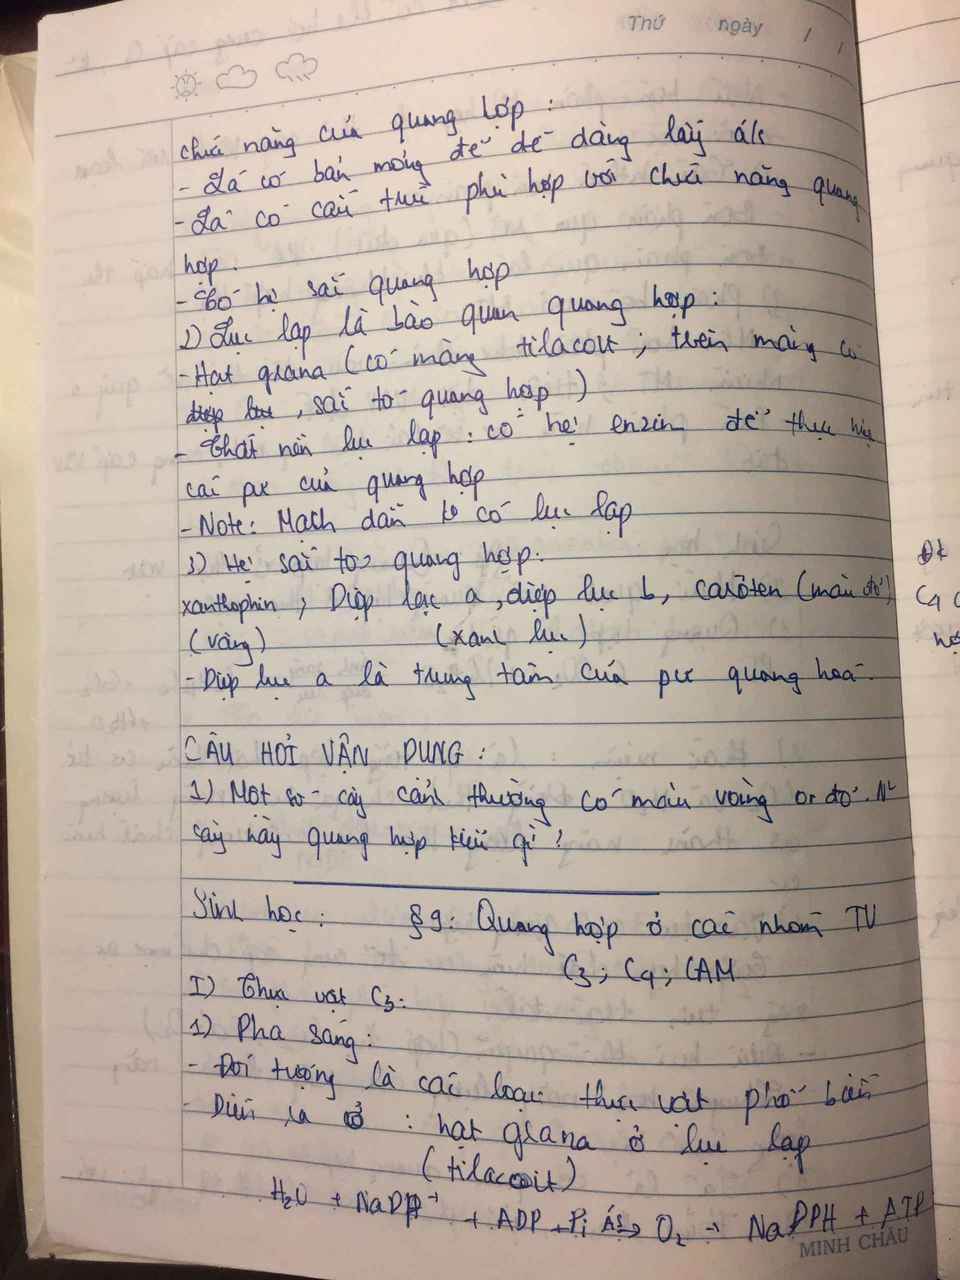 Thứ ngày / /
chức năng của quang hợp :
- Lá có bản mỏng để dễ dàng lấy ás
- Lá có cấu trúc phù hợp với chức năng quang
hợp.
- Có hệ sắc quang hợp
2) Lục lạp là bào quan quang hợp :
- Hạt grana (có màng tilacoit ; trên màng có
diệp lục, sắc tố quang hợp)
- Chất nền lục lạp : có hệ enzin để thực hiện
các pư của quang hợp
- Note: Mạch dẫn ko có lục lạp
3) Hệ sắc tố quang hợp:
xanthophin ; Diệp lục a, diệp lục b, carôten (màu đỏ)
(vàng) (xanh lục)
- Diệp lục a là trung tâm của pư quang hoá.
CÂU HỎI VẬN DỤNG :
1) Một số cây cảnh thường có màu vàng or đỏ. N²
cây này quang hợp kiểu gì?
Sinh học: §9: Quang hợp ở các nhóm TV
C3 ; C4 ; CAM
I) Thực vật C3:
1) Pha sáng:
- Đối tượng là các loại thực vật phổ biến
- Diễn ra ở : hạt grana ở lục lạp
(tilacoit)
H2O + NaDP+ + ADP + Pi ÁS→ O2 + NaDPH + ATP
MINH CHÂU
Đk
C4